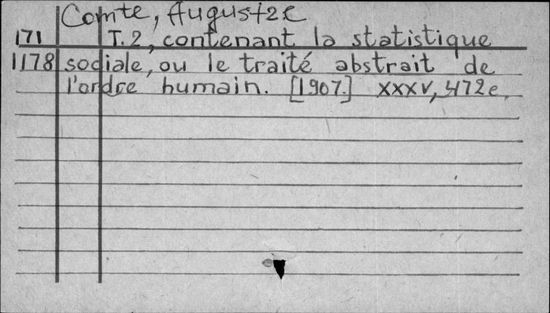 Comte, Auguste
171 T. 2, contenant la statistique
1178 sociale, ou le traité abstrait de
l'ordre humain. [1907.] XXXV, 472 c.